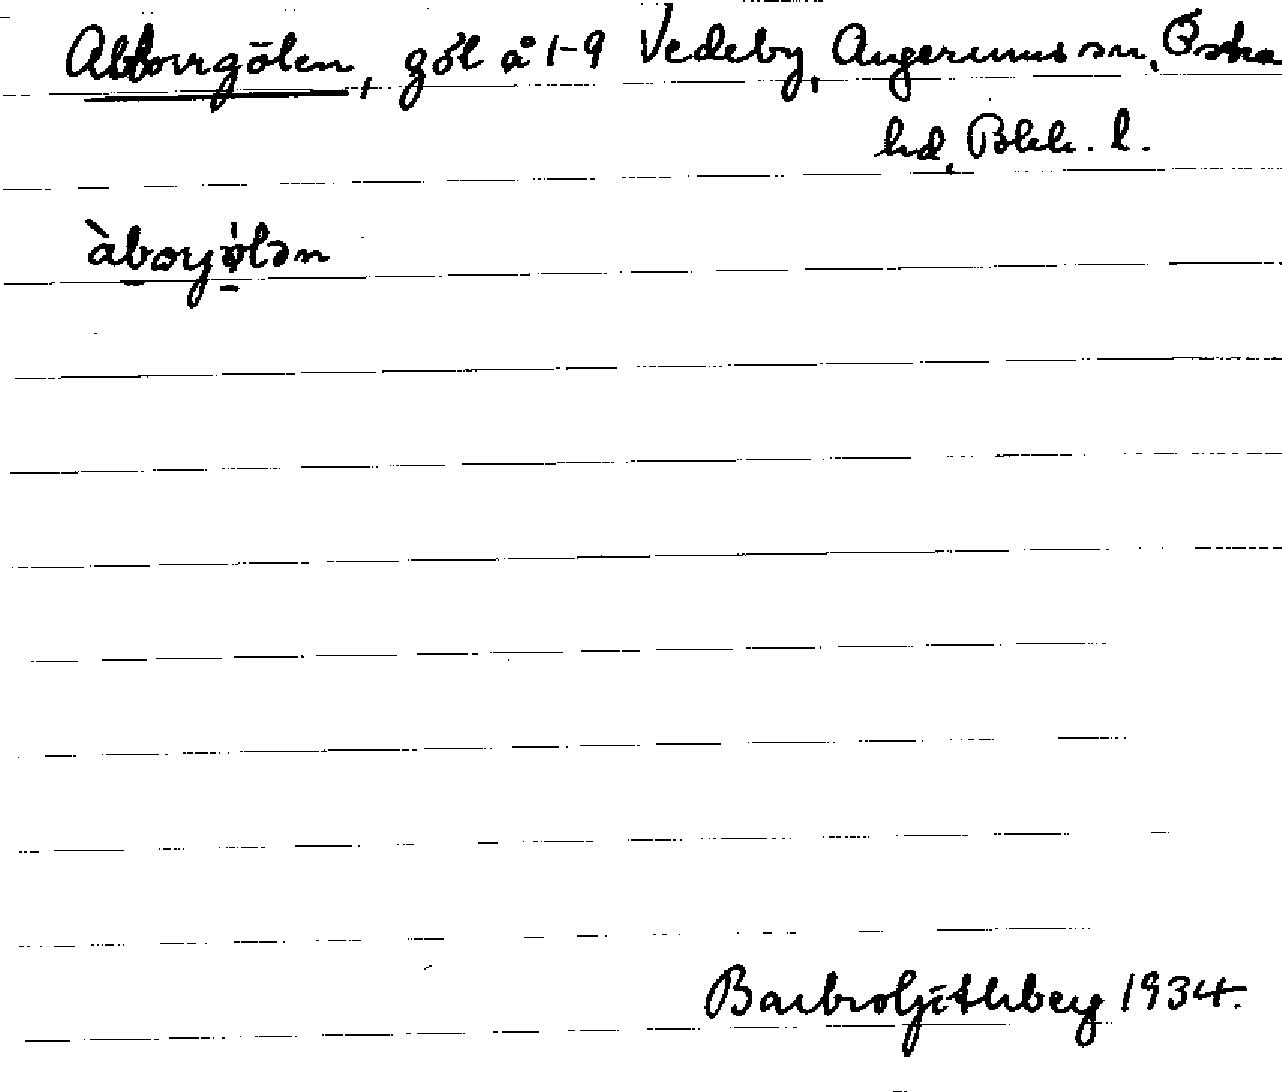 Abborrgölen, göl å 1-9 Vedeby, Augerums sn, Östra
hd, Blek. l.
àborjølən
Barbro 1934.